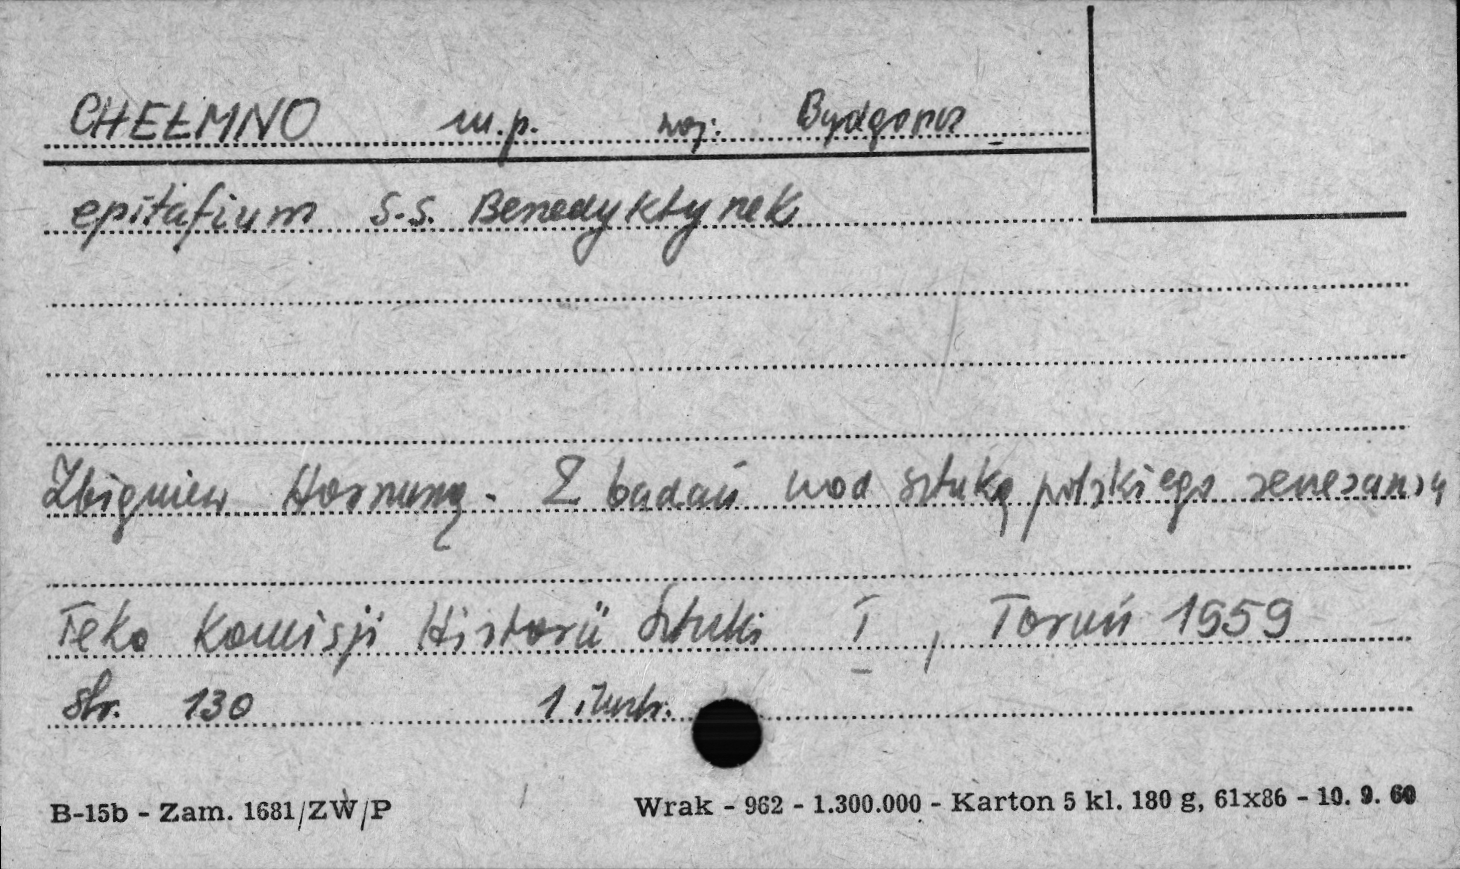 CHEŁMNO m.p. woj. Bydgoszcz
epitafium S.S. Benedyktynek
Zbigniew Hornung. Z badań nad sztuką polskiego renesansu
Teka Komisji Historii Sztuki I, Toruń 1959
str. 130 1 ilustr.
B-15b - Zam. 1681/ZW/P Wrak - 962 - 1.300.000 - Karton 5 kl. 180 g, 61x86 - 10. 9. 60